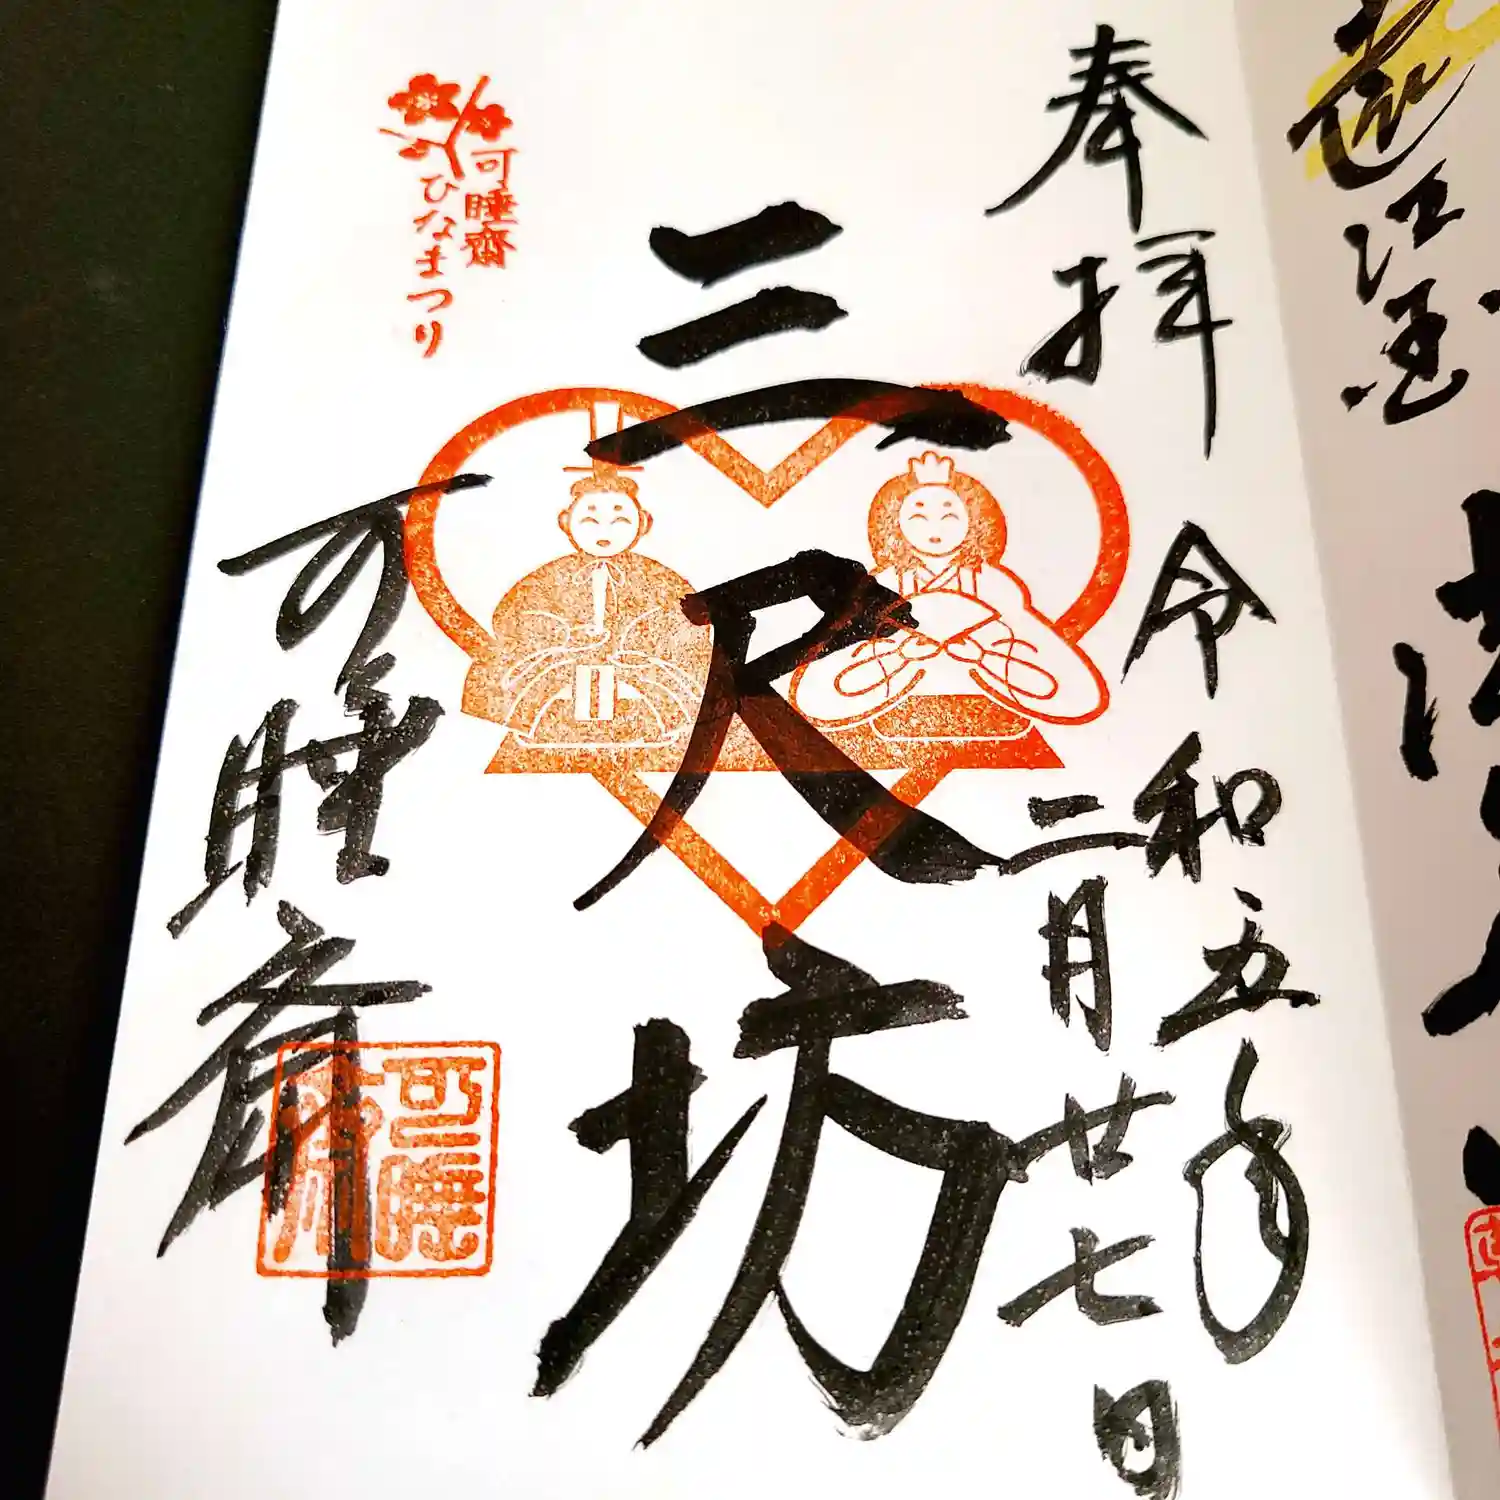 奉拝
令和五年
二月廿七日
三尺坊
可睡齋
ひなまつり
可睡斎
可睡